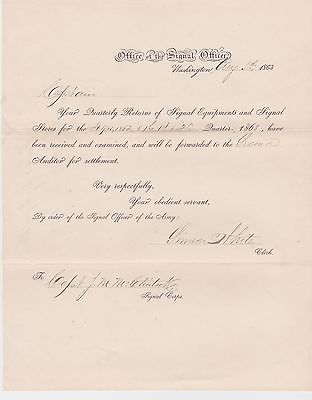 Office of the Signal Officer,
Washington, Aug 1863
Captain
Your Quarterly Returns of Signal Equipments and Signal
Stores for the Quarter, 1863, have
been received and examined, and will be forwarded to the Second
Auditor for settlement.
Very respectfully,
Your obedient servant,
By order of the Signal Officer of the Army:
White
Clerk.
To
Capt J. M. McClintock
Signal Corps.